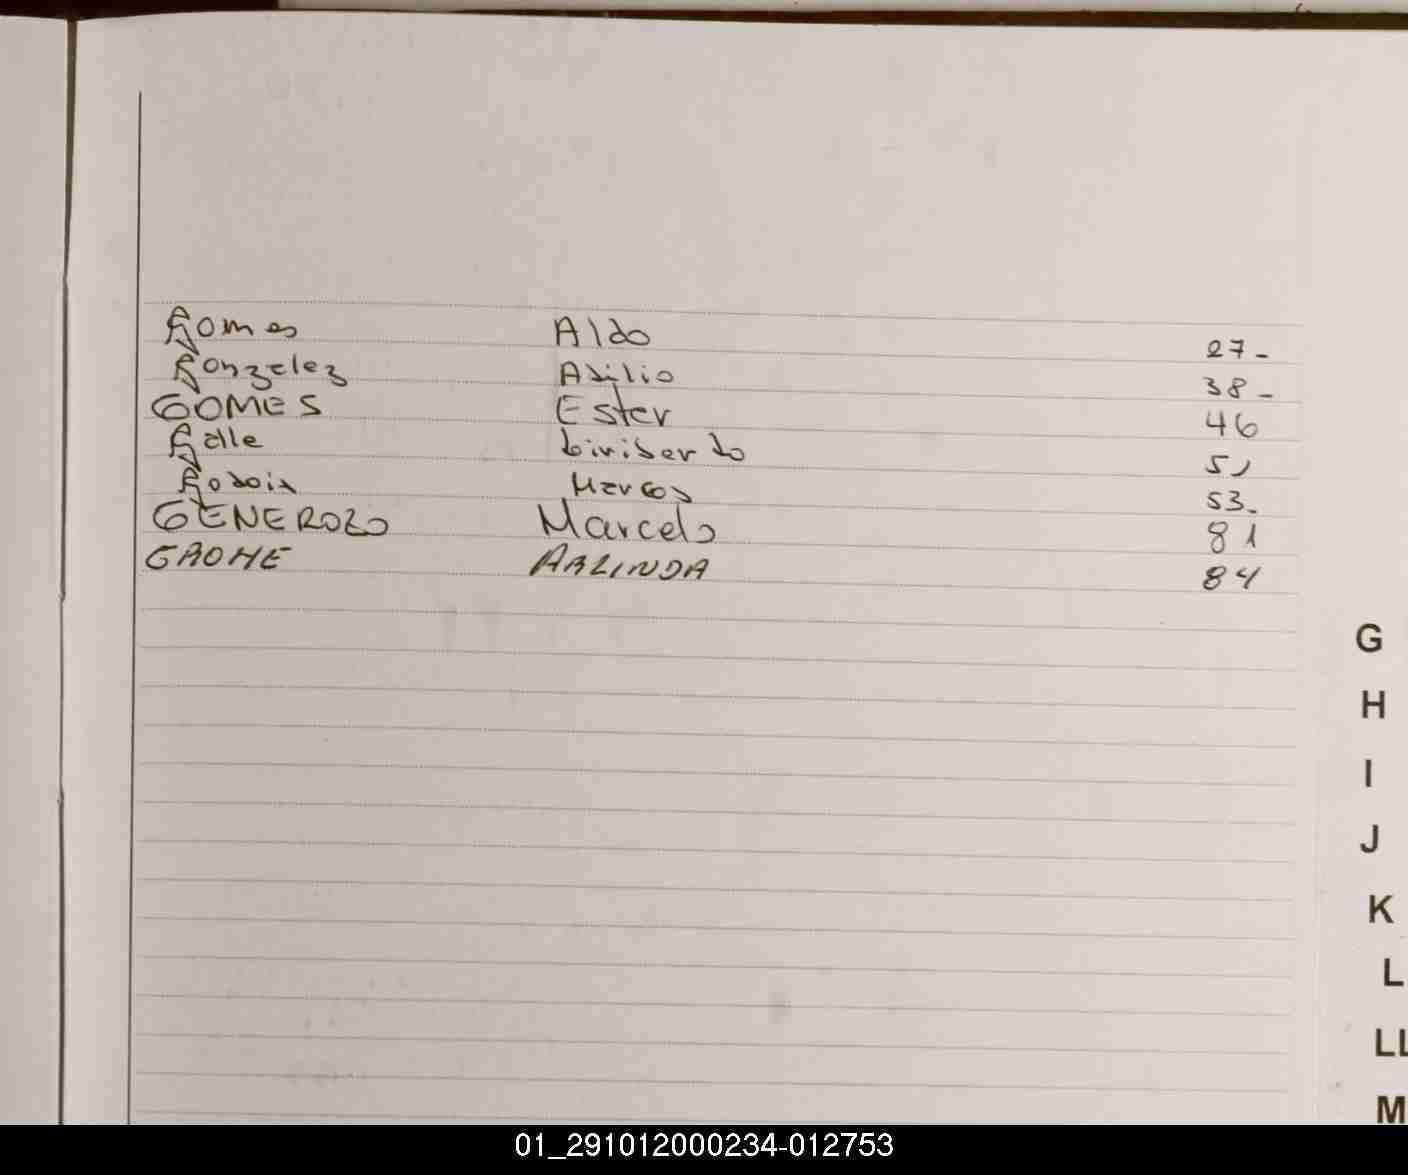 Gomes Aldo 27-
Gonzalez Asilio 38-
GOMES Ester 46
Galle 51
Godoix Marcos 53-
GENEROZO Marcelo 81
GROHE ARLINDA 84
G
H
I
J
K
L
LL
M
01_291012000234-012753